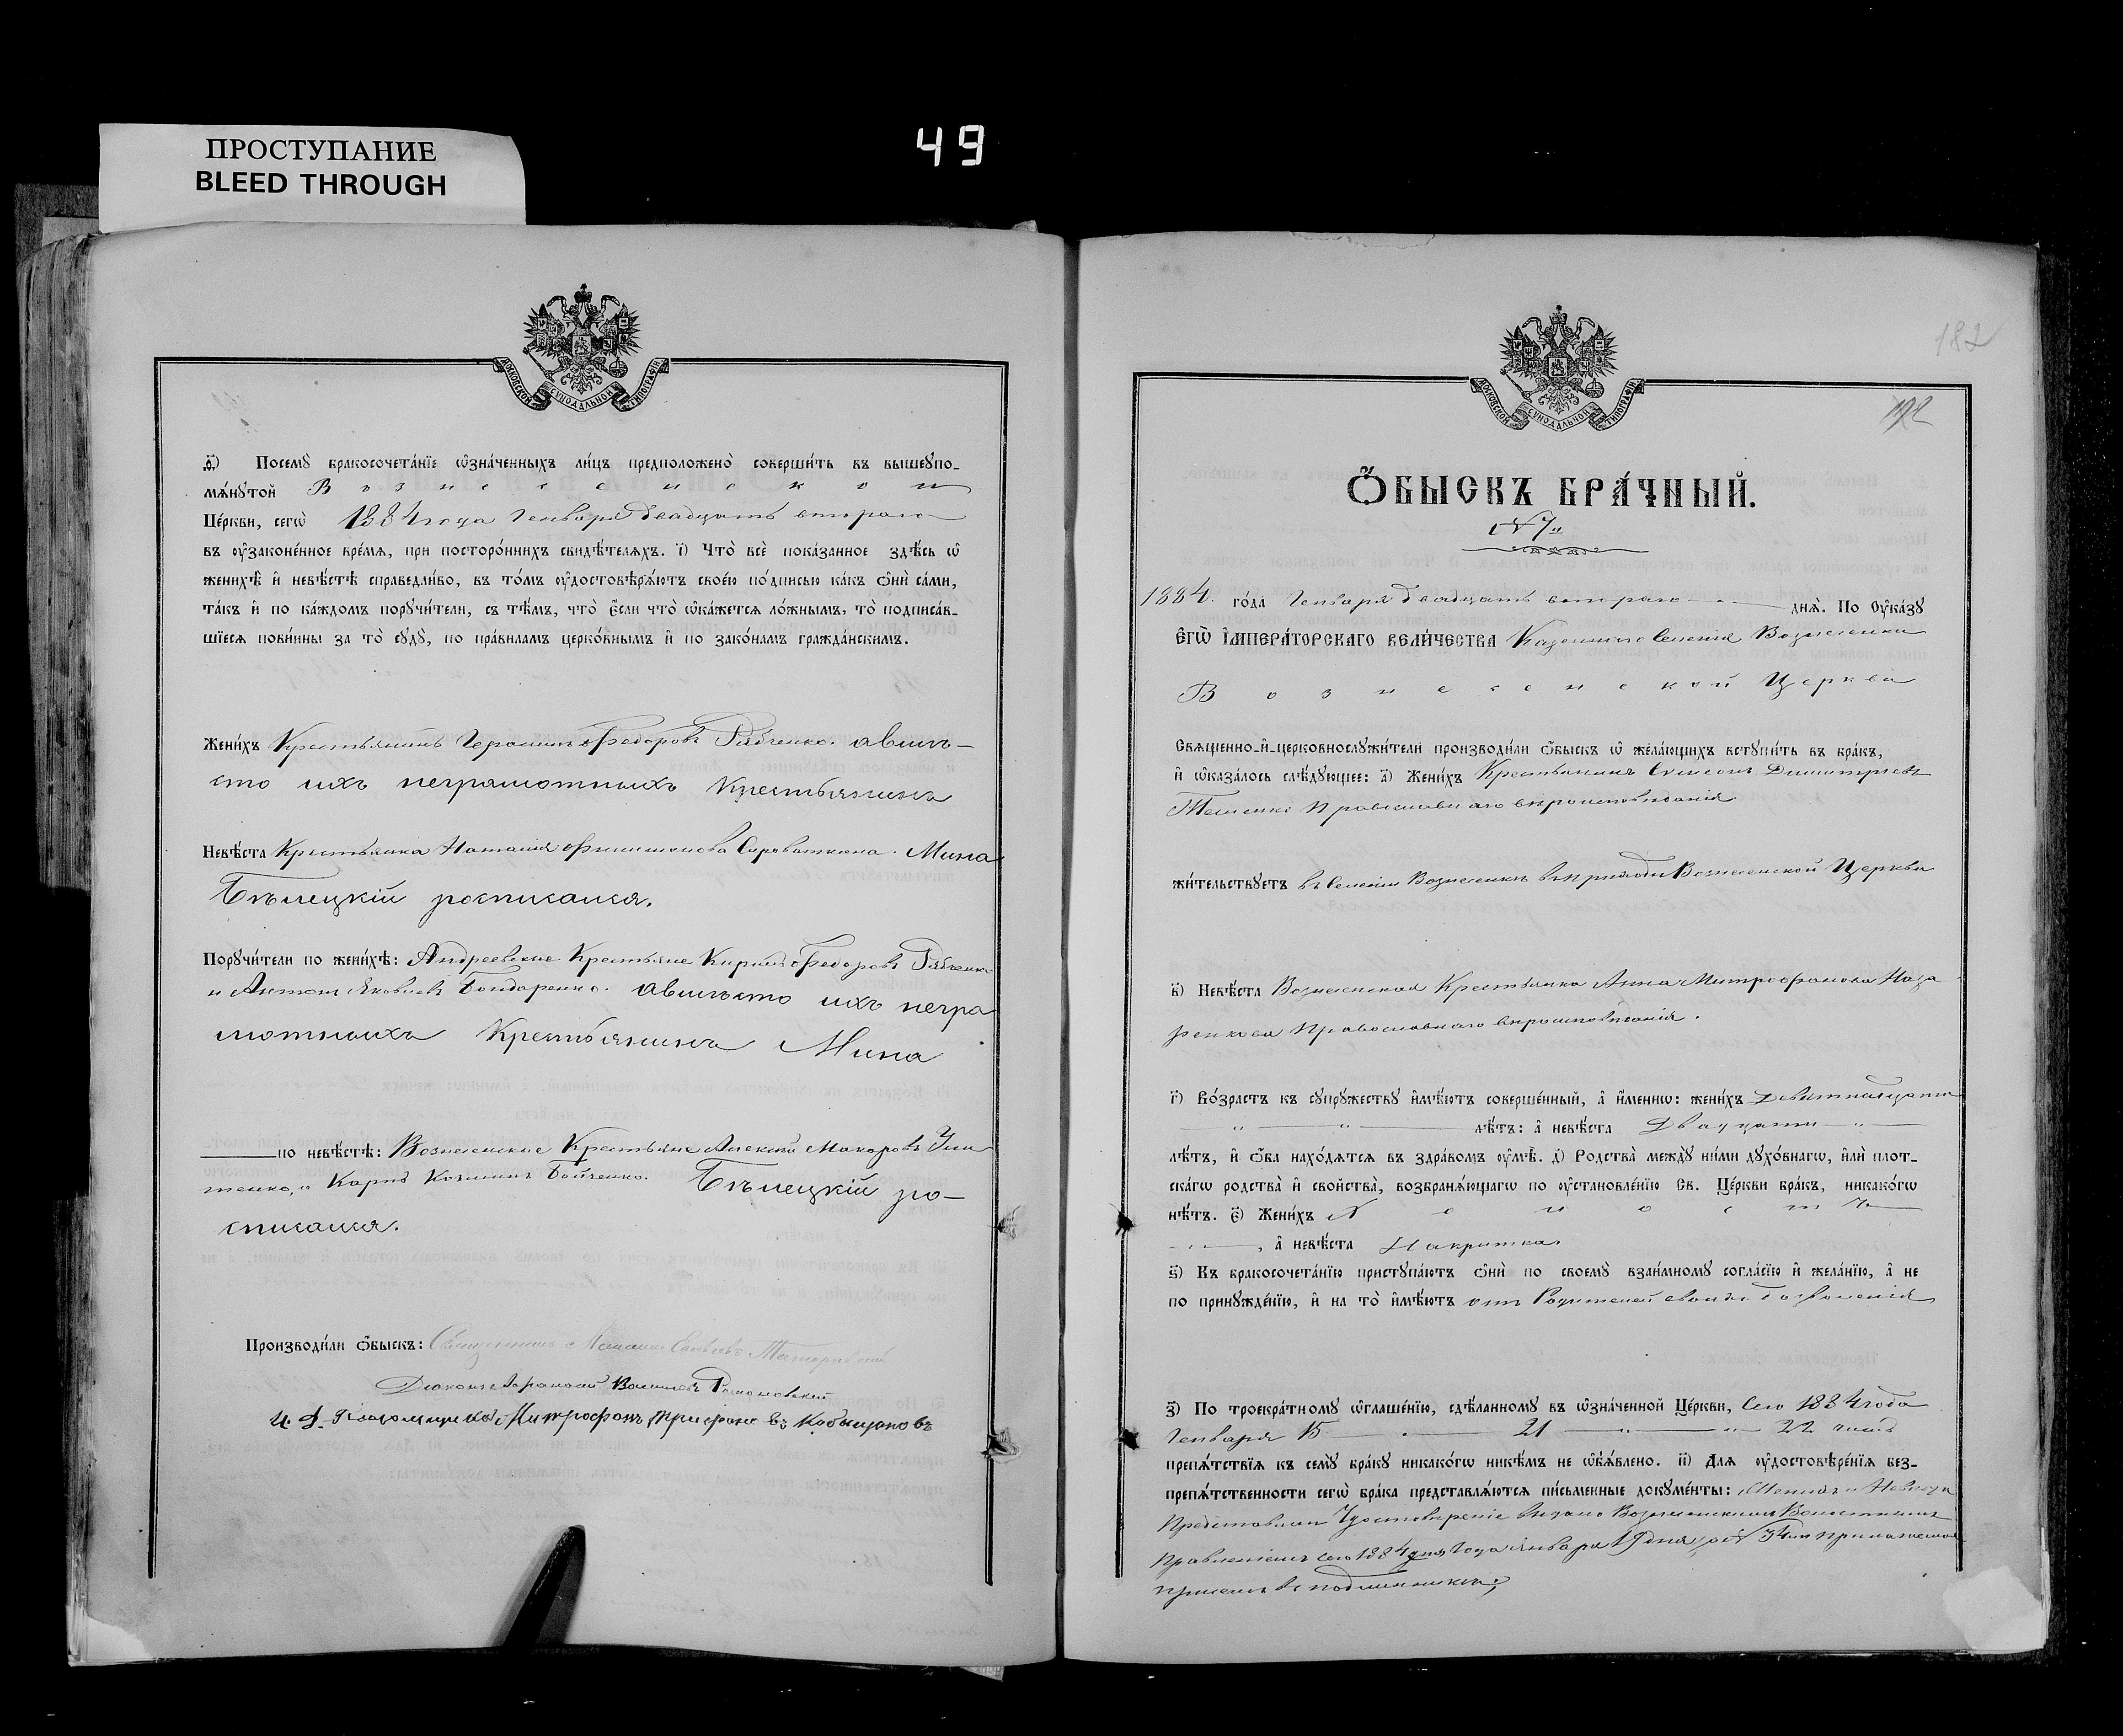 ПРОСТУПАНИЕ
BLEED THROUGH
49
МОСКОВСКОЙ СѴНОДАЛЬНОЙ ТИПОГРАФІИ
ѳ҃) Посемꙋ̀ бракосочета́нїе ѡ҆зна́ченныхъ ли́цъ предположено̀ соверши́ть въ вышеꙋпо-
мѧ́нꙋтой Вознесенской
Це́ркви, сегѡ̀ 1884 года Генваря двадцать второго
въ ᲂу҆законе́нное вре́мѧ, при посторо́ннихъ свидѣ́телѧхъ. і҃) Что̀ всѐ пока́занное здѣ́сь ѡ҆
женихѣ̀ и҆ невѣ́стѣ справедли́во, въ то́мъ ᲂу҆достовѣрѧ́ютъ свое́ю по́дписью ка́къ ѻ҆нѝ са́ми,
та́къ и҆ по ка́ждомъ порꙋчи́тели, съ тѣ́мъ, что̀ є҆́сли что̀ ѡ҆ка́жетсѧ ло́жнымъ, то̀ подписа́в-
шїесѧ пови́нны за то̀ сꙋдꙋ̀, по пра́виламъ церко́внымъ и҆ по зако́намъ гражда́нскимъ.
Жени́хъ Крестьянинъ Герасимъ Федоровъ Рябченко. авмѣ-
сто ихъ неграмотныхъ Крестьянинъ
Невѣ́ста Крестьянка Наталия Филимонова Сыроваткина. Мина
Бѣлецкій росписался.
Порꙋчи́тели по женихѣ̀: Андреевские Крестьяне Кирилъ Федоровъ Рябченко
и Антонъ Яковлевъ Бондаренко. авмѣсто ихъ негра
мотныхъ Крестьянинъ Мина
по невѣ́стѣ: Вознесенские Крестьяне Алексей Макаровъ
тенко, и Карпъ Козминъ Бойченко. Бѣлецкій ро-
списался.
Производи́ли ѻ҆́быскъ: Священникъ
Диаконъ Афанасий Василевъ Романовский
И. Д. Псаломщика Митрофанъ Трифоновъ Кобыщановъ
182
МОСКОВСКОЙ СѴНОДАЛЬНОЙ ТИПОГРАФІИ
Ѻ҆́БЫСКЪ БРА́ЧНЫЙ.
№ 7й
1884. го́да Генваря двадцать второго днѧ̀. По Оу҆ка́зꙋ
Є҆ГѠ̀ І҆МПЕРА́ТОРСКАГО ВЕЛИ́ЧЕСТВА Казенного Селения Вознесенки
Вознесенской Церкви
Свѧщенно-и҆-церковнослꙋжи́тели производи́ли ѻ҆́быскъ ѡ҆ жела́ющихъ встꙋпи́ть въ бра́къ,
и҆ ѡ҆каза́лось слѣ́дꙋющее: а҃) Жени́хъ Крестьянинъ Симеонъ Димитриевъ
Православнаго вѣроисповѣдания
жи́тельствꙋетъ в Селении Вознесенкѣ в приходѣ Вознесенской Церкви
в҃) Невѣ́ста Вознесенская Крестьянка Анна Митрофанова Наза
ренкова Православнаго вѣроисповѣдания.
г҃) Во́зрастъ къ сꙋпрꙋ́жествꙋ и҆мѣ́ютъ соверше́нный, а҆ и҆́меннѡ: жени́хъ Девятнадцати
лѣ́тъ: а҆ невѣ́ста Двадцати
лѣ́тъ, и҆ ѻ҆́ба нахо́дѧтсѧ въ здра́вомъ ᲂу҆мѣ̀. д҃) Родства̀ междꙋ̀ ни́ми дꙋхо́внагѡ, и҆лѝ плот-
ска́гѡ родства̀ и҆ свойства̀, возбранѧ́ющагѡ по ᲂу҆становле́нїю Св. Це́ркви бра́къ, никако́гѡ
нѣ́тъ. є҃) Жени́хъ Холостъ
, а҆ невѣ́ста
ѕ҃) Къ бракосочета́нїю пристꙋпа́ютъ ѻ҆нѝ по своемꙋ̀ взаи́мномꙋ согла́сїю и҆ жела́нїю, а҆ не
по принꙋжде́нїю, и҆ на то̀ и҆мѣ́ютъ отъ Родителей своихъ Позволения
з҃) По троекра́тномꙋ ѡ҆глаше́нїю, сдѣ́ланномꙋ въ ѡ҆зна́ченной Це́ркви, Сего 1884 года
Генваря 15 21 22 числъ
препѧ́тствїѧ къ семꙋ̀ бра́кꙋ никако́гѡ никѣ́мъ не ѡ҆б̾ѧ́влено. и҃) Длѧ̀ ᲂу҆достовѣре́нїѧ без-
препѧ́тственности сегѡ̀ бра́ка представлѧ́ютсѧ пи́сьменные докꙋме́нты: Женихъ и Невеста
Представили Удостоверение выдано Вознесенскимъ Волостнымъ
Правлениемъ сего 1884 года Января 19 дня за № 34м
при семъ в подлиннике;